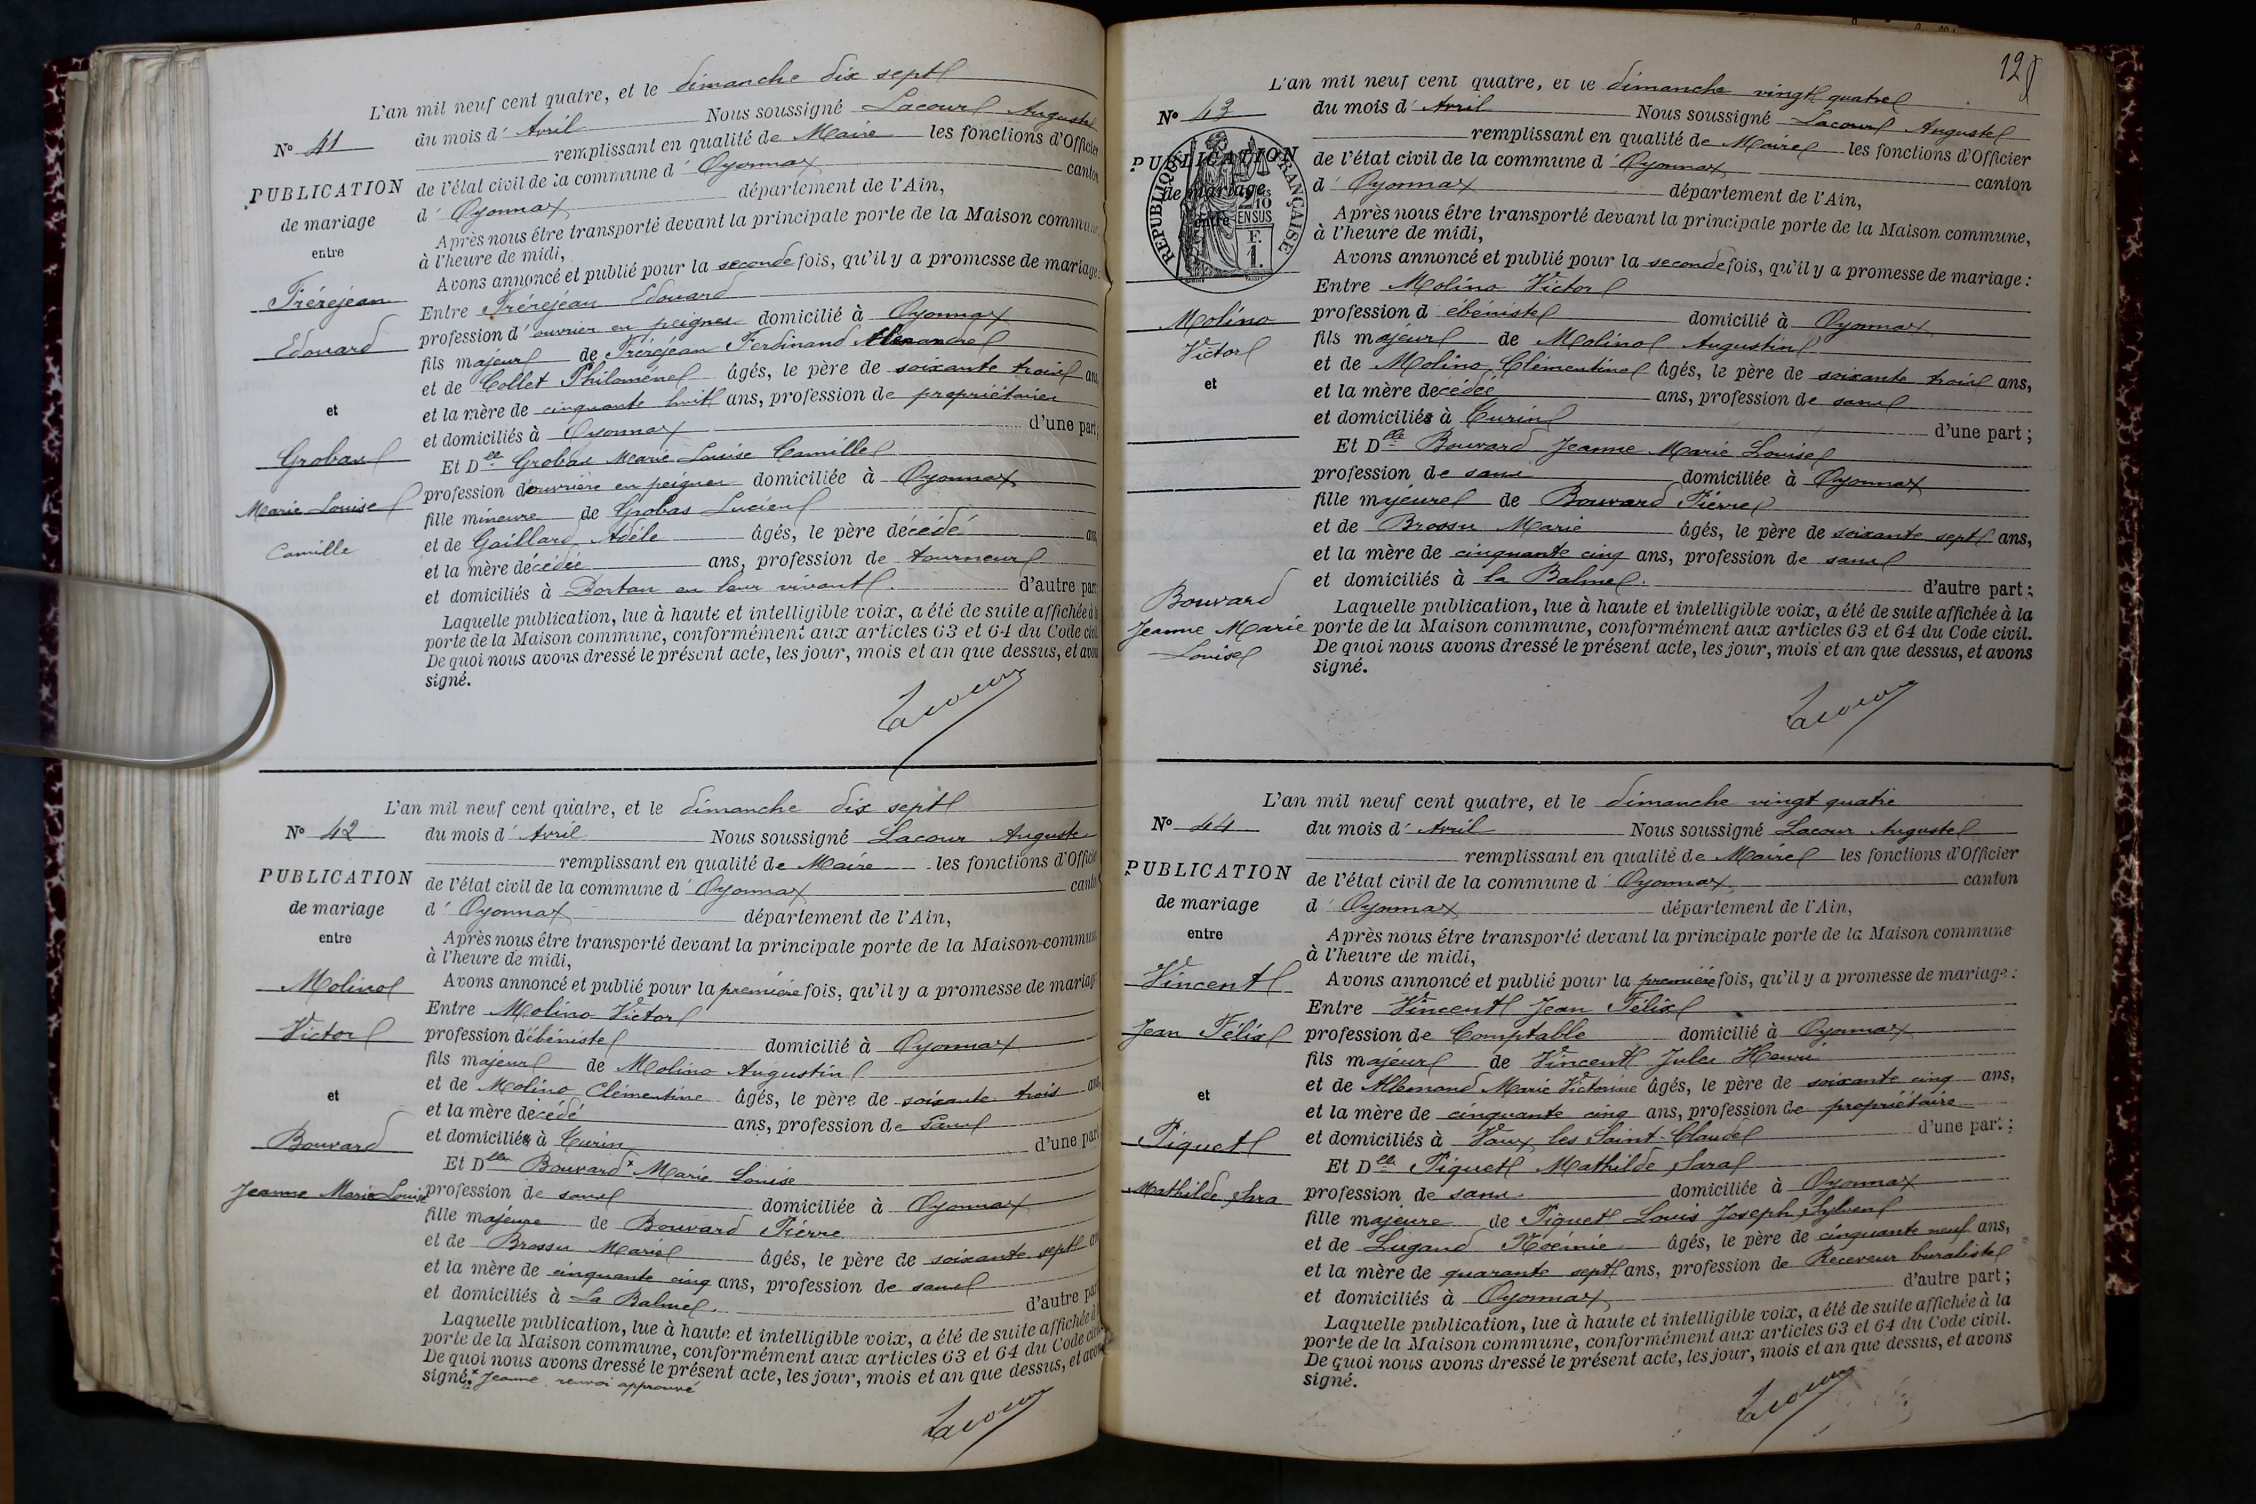 L'an mil neuf cent quatre, et le dimanche dix sept
N° 41 du mois d'Avril Nous soussigné Lacour Auguste
remplissant en qualité de Maire les fonctions d'Officier
PUBLICATION de l'état civil de la commune d'Oyonnax canton
de mariage d'Oyonnax département de l'Ain,
Après nous être transporté devant la principale porte de la Maison commune
entre à l'heure de midi,
Avons annoncé et publié pour la seconde fois, qu'il y a promesse de mariage:
Frérejean Entre Frérejean Edouard
profession d'ouvrier en peignes domicilié à Oyonnax
Edouard fils majeur de Frérejean Ferdinand Alexandre
et de Collet Philomène âgés, le père de soixante trois ans,
et et la mère de cinquante huit ans, profession de propriétaires
et domiciliés à Oyonnax d'une part;
Grobas Et Dlle Grobas Marie Louise Camille
profession d'ouvrière en peignes domiciliée à Oyonnax
Marie Louise fille mineure de Grobas Lucien
Camille et de Gaillard Adèle âgés, le père décédé ans,
et la mère décédée ans, profession de tourneur
et domiciliés à Dortan en leur vivant. d'autre part
Laquelle publication, lue à haute et intelligible voix, a été de suite affichée à la
porte de la Maison commune, conformément aux articles 63 et 64 du Code civil.
De quoi nous avons dressé le présent acte, les jour, mois et an que dessus, et avons
signé.
Lacour
L'an mil neuf cent quatre, et le dimanche dix sept
N° 42 du mois d'Avril Nous soussigné Lacour Auguste
remplissant en qualité de Maire les fonctions d'Officier
PUBLICATION de l'état civil de la commune d'Oyonnax canton
de mariage d'Oyonnax département de l'Ain,
entre Après nous être transporté devant la principale porte de la Maison commune
à l'heure de midi,
Molino Avons annoncé et publié pour la première fois, qu'il y a promesse de mariage
Entre Molino Victor
Victor profession d'ébéniste domicilié à Oyonnax
fils majeur de Molino Augustin
et et de Molino Clémentine âgés, le père de soixante trois ans,
et la mère décédé ans, profession de sans
Bouvard et domiciliés à Turin d'une part
Et Dlle Bouvard x Marie Louise
Jeanne Marie Louise profession de sans domiciliée à Oyonnax
fille majeure de Bouvard Pierre
et de Brossu Marie âgés, le père de soixante sept ans
et la mère de cinquante cinq ans, profession de sans
et domiciliés à La Balme. d'autre part
Laquelle publication, lue à haute et intelligible voix, a été de suite affichée à la
porte de la Maison commune, conformément aux articles 63 et 64 du Code civil.
De quoi nous avons dressé le présent acte, les jour, mois et an que dessus, et avons
signé. x Jeanne renvoi approuvé
Lacour
L'an mil neuf cent quatre, et le dimanche vingt quatre
N° 43 du mois d'Avril Nous soussigné Lacour Auguste
remplissant en qualité de Maire les fonctions d'Officier
PUBLICATION de l'état civil de la commune d'Oyonnax canton
de mariage d'Oyonnax département de l'Ain,
entre Après nous être transporté devant la principale porte de la Maison commune,
à l'heure de midi,
RÉPUBLIQUE FRANÇAISE
2/10 EN SUS
F. 1.
Avons annoncé et publié pour la seconde fois, qu'il y a promesse de mariage:
Entre Molino Victor
Molino profession d ébéniste domicilié à Oyonnax
Victor fils majeur de Molino Augustin
et de Molino Clémentine âgés, le père de soixante trois ans,
et et la mère décédée ans, profession de sans
et domiciliés à Turin d'une part;
Et Dlle Bouvard Jeanne Marie Louise
profession de sans domiciliée à Oyonnax
fille majeure de Bouvard Pierre
et de Brossu Marie âgés, le père de soixante sept ans,
et la mère de cinquante cinq ans, profession de sans
Bouvard et domiciliés à la Balme. d'autre part;
Laquelle publication, lue à haute et intelligible voix, a été de suite affichée à la
Jeanne Marie porte de la Maison commune, conformément aux articles 63 et 64 du Code civil.
Louise De quoi nous avons dressé le présent acte, les jour, mois et an que dessus, et avons
signé.
Lacour
L'an mil neuf cent quatre, et le dimanche vingt quatre
N° 44 du mois d'Avril Nous soussigné Lacour Auguste
remplissant en qualité de Maire les fonctions d'Officier
PUBLICATION de l'état civil de la commune d'Oyonnax canton
de mariage d'Oyonnax département de l'Ain,
entre Après nous être transporté devant la principale porte de la Maison commune
à l'heure de midi,
Vincent Avons annoncé et publié pour la première fois, qu'il y a promesse de mariage:
Entre Vincent Jean Félix
Jean Félix profession de Comptable domicilié à Oyonnax
fils majeur de Vincent Jules Henri
et et de Allemand Marie Victorine âgés, le père de soixante cinq ans,
et la mère de cinquante cinq ans, profession de propriétaire
Piquet et domiciliés à Vaux les Saint-Claude d'une part;
Et Dlle Piquet Mathilde Sara
Mathilde Sara profession de sans domiciliée à Oyonnax
fille majeure de Piquet Louis Joseph Sylvain
et de Lugand Noémie âgés, le père de cinquante neuf ans,
et la mère de quarante sept ans, profession de Receveur buraliste
et domiciliés à Oyonnax d'autre part;
Laquelle publication, lue à haute et intelligible voix, a été de suite affichée à la
porte de la Maison commune, conformément aux articles 63 et 64 du Code civil.
De quoi nous avons dressé le présent acte, les jour, mois et an que dessus, et avons
signé.
Lacour